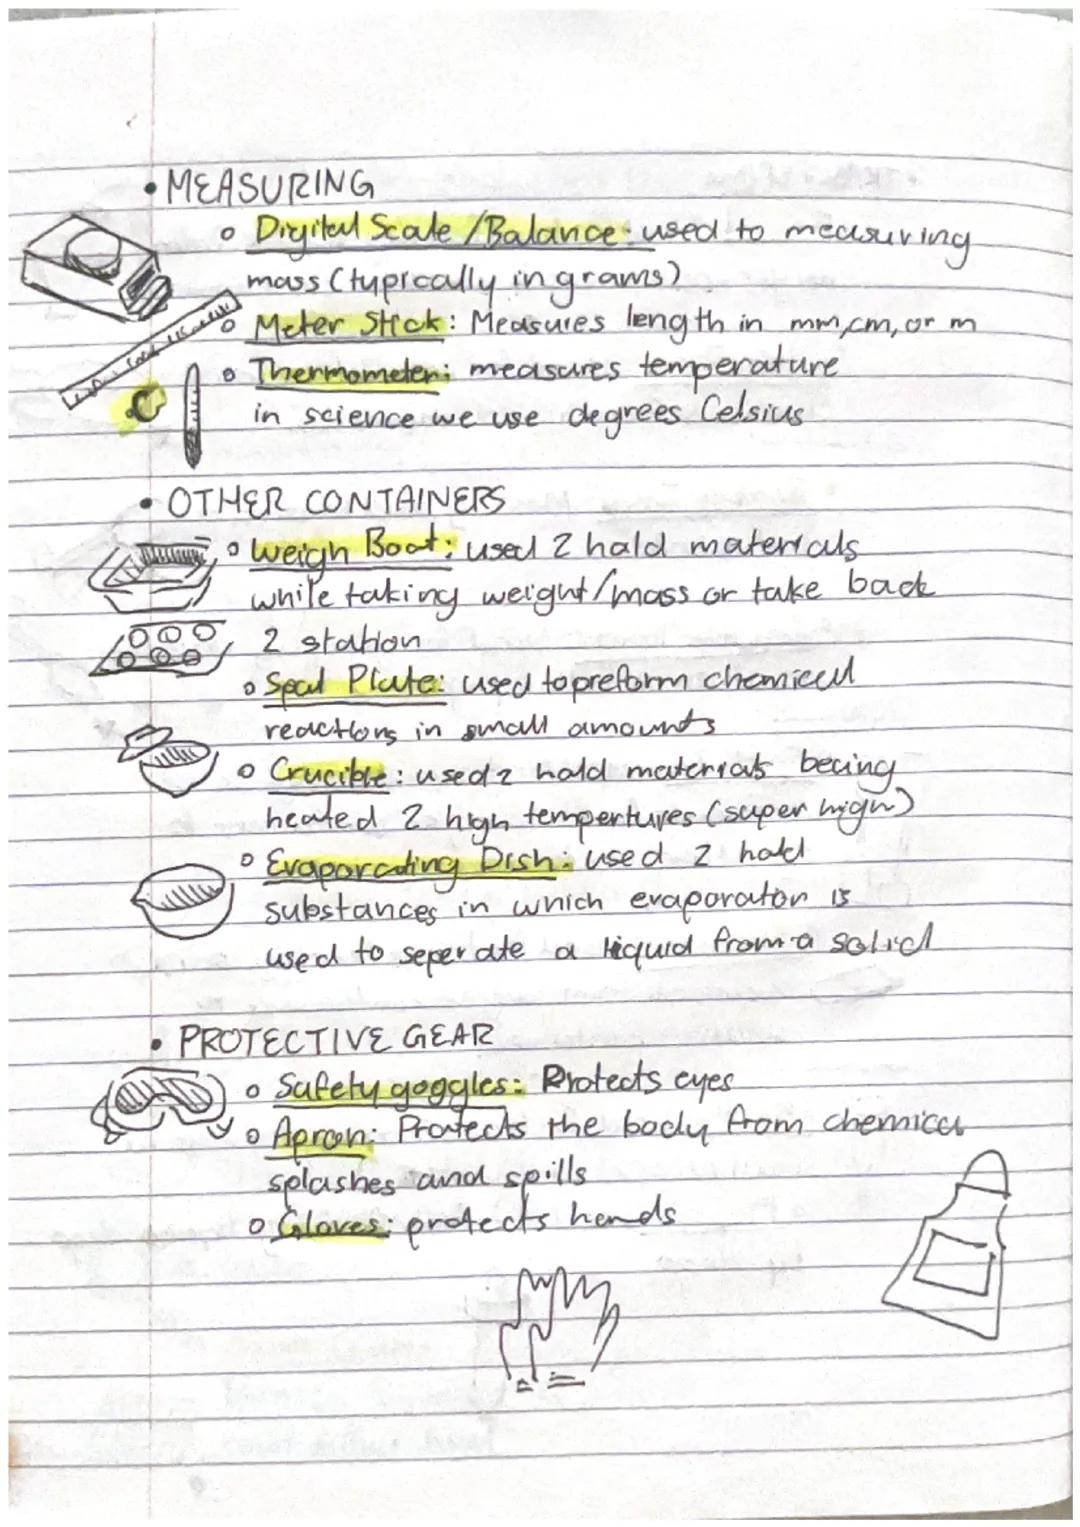 • MEASURING
o Digital Scale / Balance: used to measuring
mass (typically in grams)
o Meter Stick: Measures length in mm, cm, or m
o Thermometer: measures temperature
in science we use degrees Celsius
• OTHER CONTAINERS
o Weigh Boat: used 2 hold materials
while taking weight/mass or take back
2 station
o Spot Plate: used to preform chemical
reactions in small amounts
o Crucible: used 2 hold materials being
heated 2 high tempertures (super high)
o Evaporating Dish: used 2 hold
substances in which evaporation is
used to seperate a liquid from a solid
• PROTECTIVE GEAR
o Safety goggles: Protects eyes
o Apron: Protects the body from chemical
splashes and spills
o Gloves: protects hands